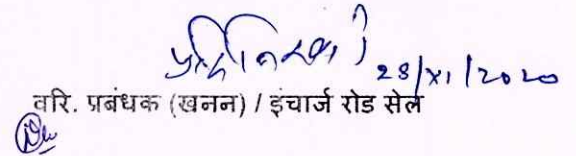 28/XI/2020
वरि. प्रबंधक (खनन) / इंचार्ज रोड सेल